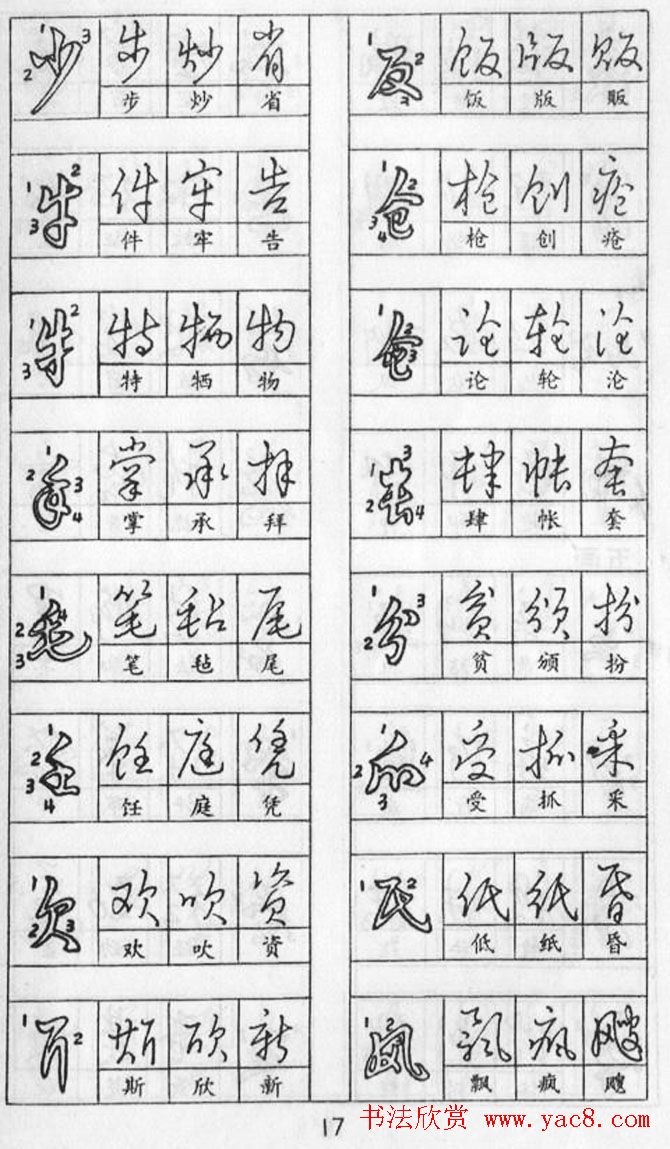 少 步 炒 省
步 炒 省
牛 件 牢 告
件 牢 告
牛 特 牺 物
特 牺 物
手 掌 承 拜
掌 承 拜
毛 笔 毡 尾
笔 毡 尾
壬 饪 庭 凭
饪 庭 凭
欠 欢 吹 资
欢 吹 资
斤 斯 欣 新
斯 欣 新
反 饭 版 贩
饭 版 贩
仓 枪 创 疮
枪 创 疮
仑 论 轮 沦
论 轮 沦
长 肆 帐 套
肆 帐 套
分 贫 颁 扮
贫 颁 扮
爪 受 抓 采
受 抓 采
氏 低 纸 昏
低 纸 昏
风 飘 疯 飕
飘 疯 飕
17
书法欣赏 www.yac8.com